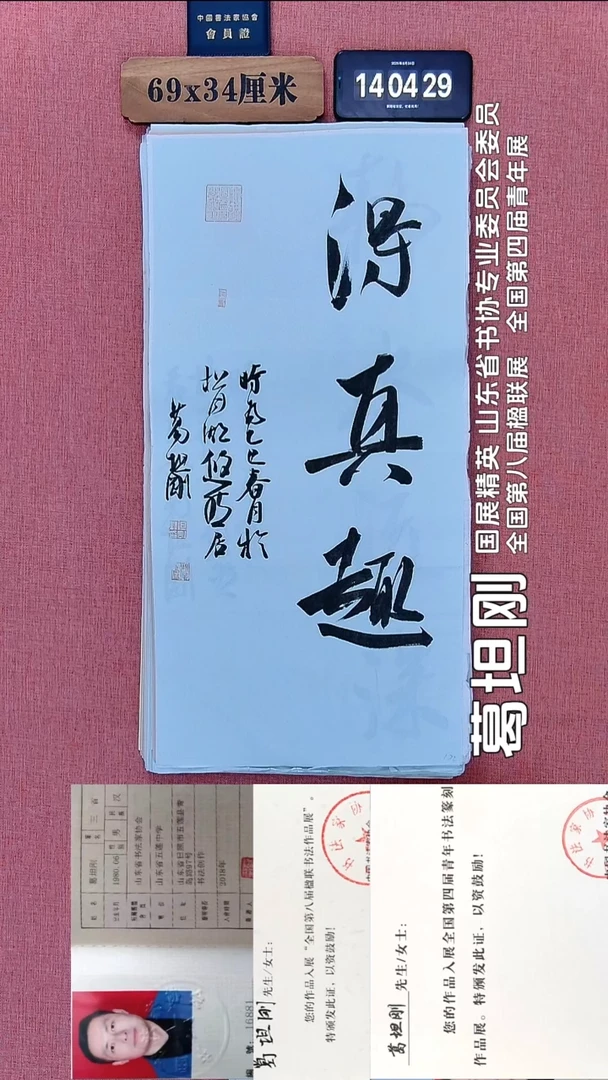 中國書法家協會
會員證
69x34厘米
14 04 29
得真趣
時在乙巳春月於
松月湖悠然居
葛坦刚
国展精英 山东省书协专业委员会委员
全国第八届楹联展 全国第四届青年展
葛坦刚
姓名 葛坦刚
性别 男
民族 汉
1980.06
山东省书法家协会
山东省五莲中学
书法创作
2018年
16881
葛坦刚 先生/女士:
您的作品入展“全国第八届楹联书法作品展”。
特颁发此证,以资鼓励!
葛坦刚 先生/女士:
您的作品入展全国第四届青年书法篆刻
作品展。特颁发此证,以资鼓励!